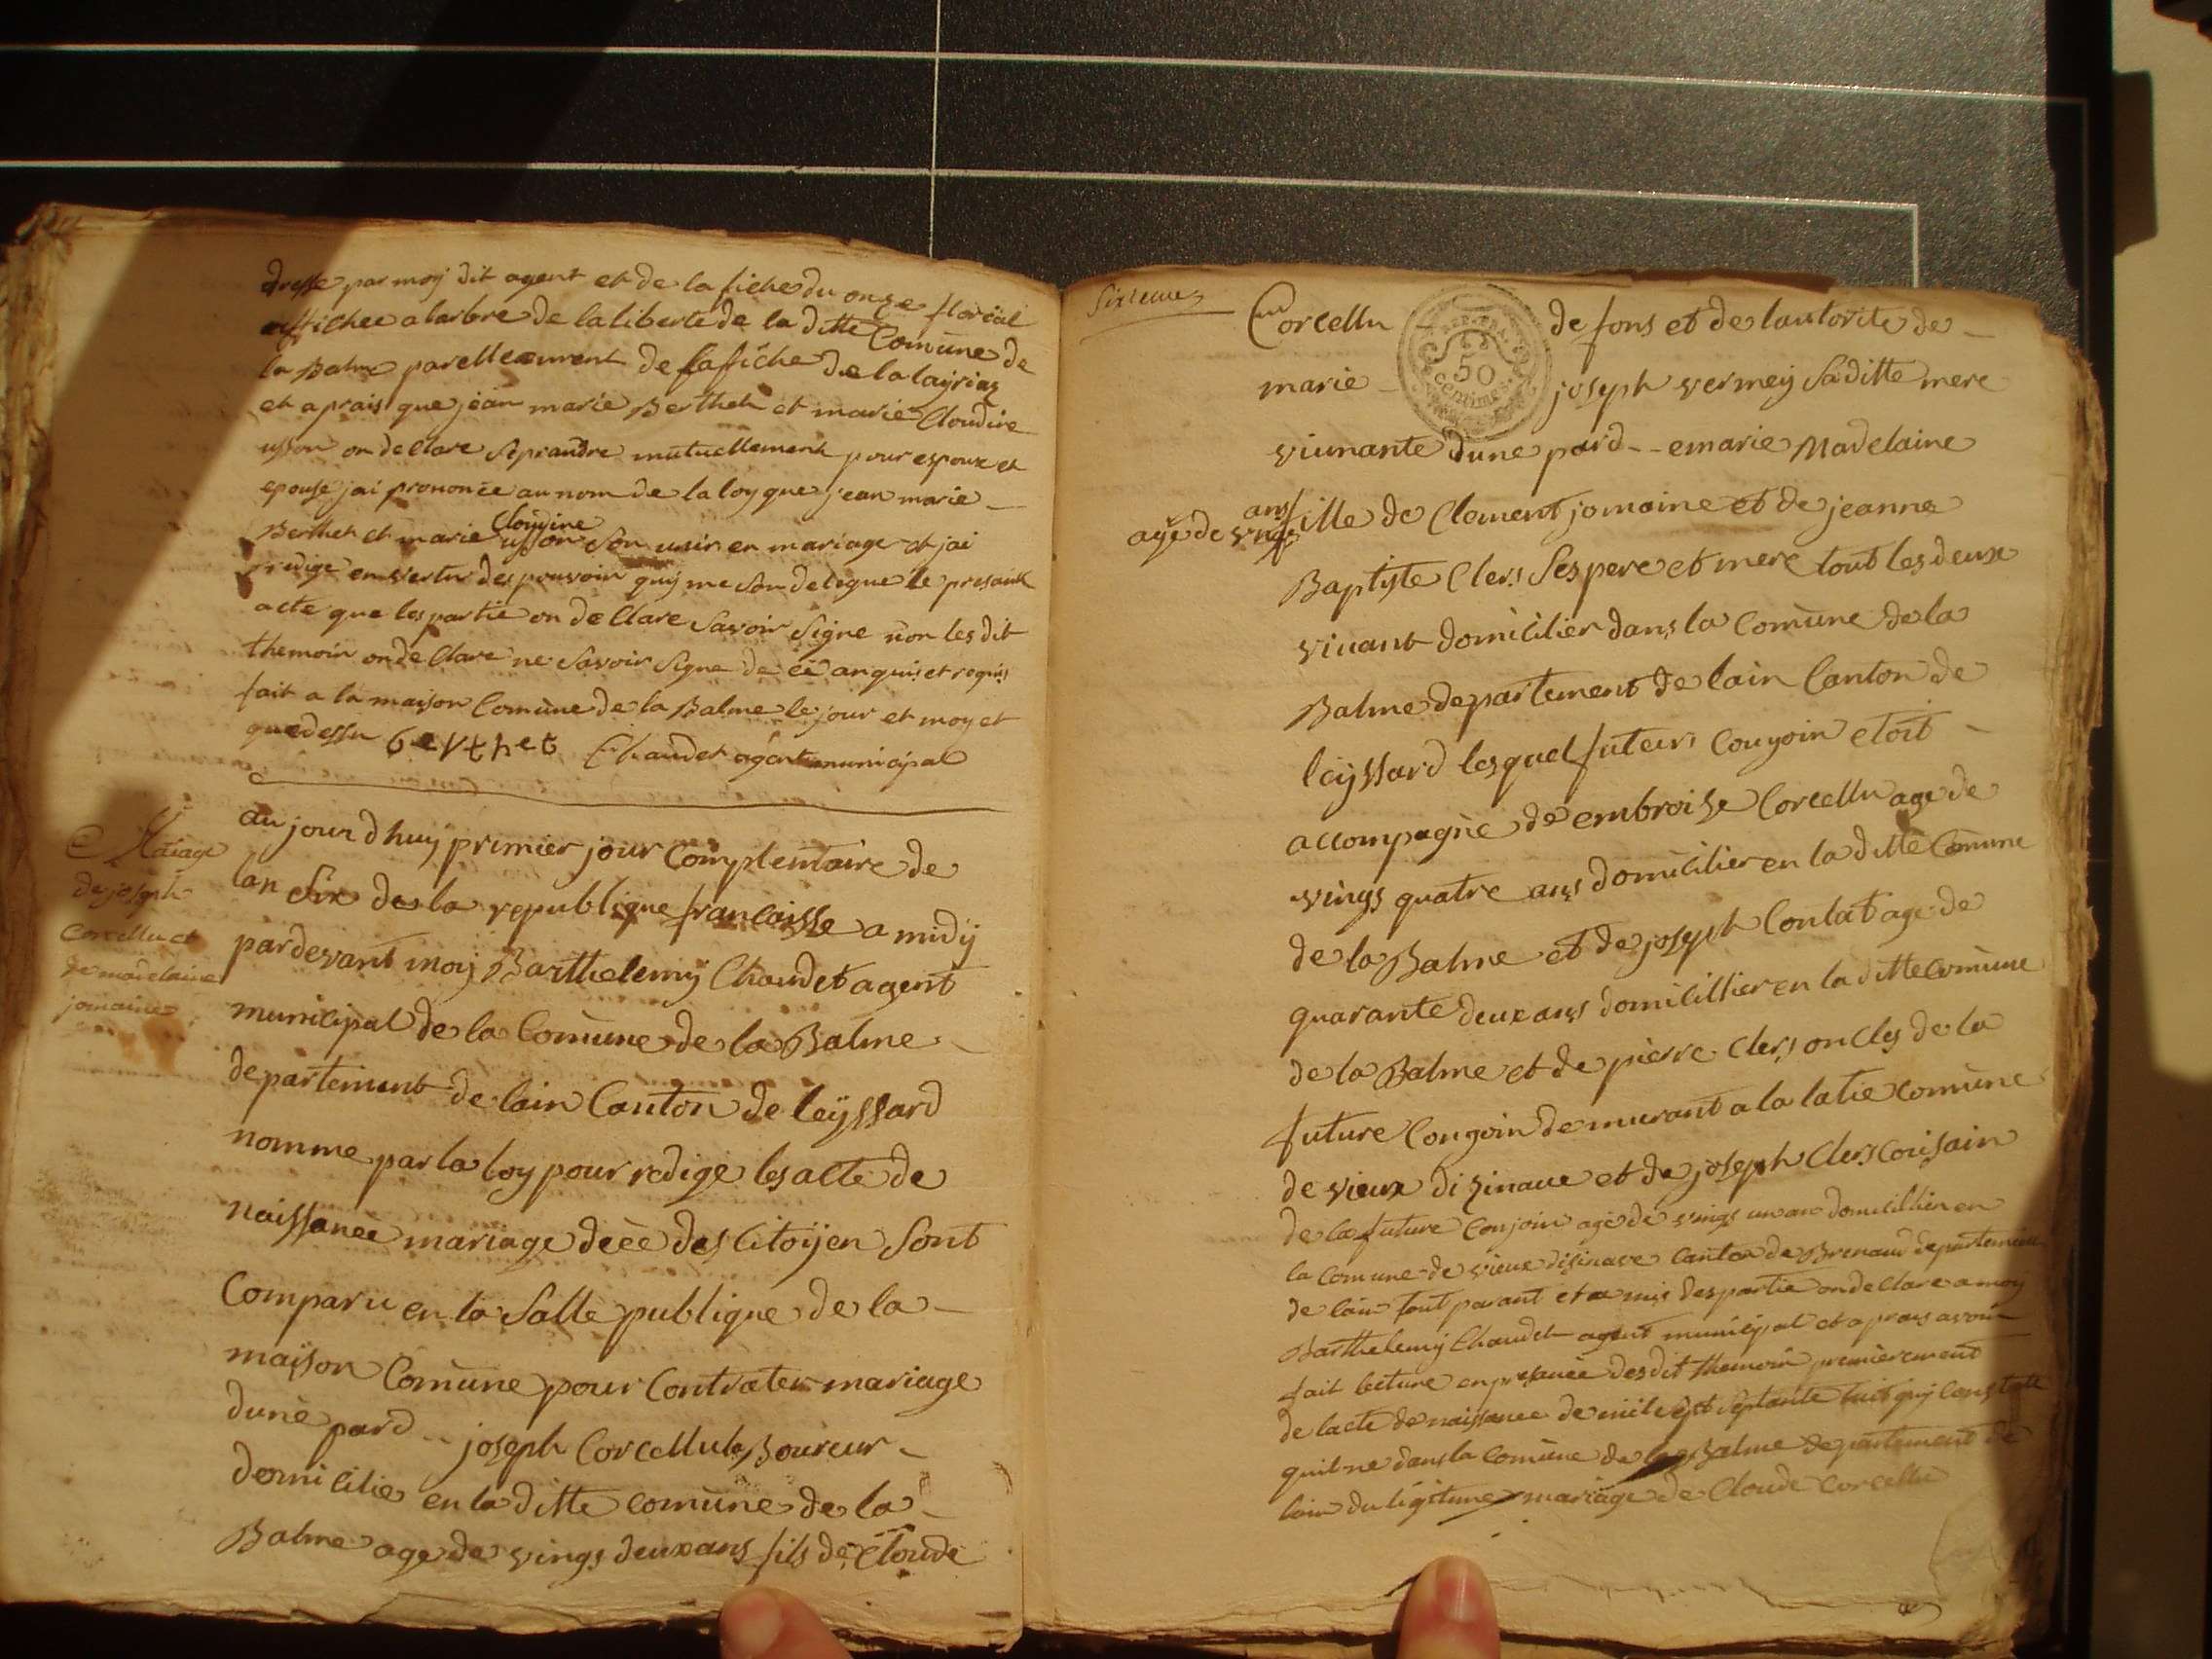 dresse par moy dit agent et de la fiche du onze floreal
affichee a larbre de la liberte de la ditte Comùne de
la Balme parellement de lafiche de la layriaz
et aprais que jean marie Berthet et marie Cloudine
usson on declare seprandre mutuellement pour espoux et
epouse jai prononcée au nom de la loy que jean marie
Berthet et marie Cloudine usson son unir en mariage et jai
redige en vertu des pouvoir quy me son delegue le presant
acte que les partie on declare savoir signe non les dit
themoin on declare ne savoir signe de ce anquis et requis
fait a la maison Comùne de la Balme le jour et moy et
quedessu berthet Chaudet agent municipal
Mariage
de joseph
Corcellu et
de madelaine
jomaine
aujourdhuy primier jour Complentaire de
lan Six de la republique francaisse a midÿ
pardevant moy Barthelemy Chaudet agent
municipal de la Comùne de la Balme
departement de lain Canton de leÿssard
nomme par la loy pour redige les acte de
naissance mariage décè des Citoÿen Sont
Comparu en la Salle publique de la
maison Comùne pour Contrater mariage
dune pard -- joseph Corcellu laboureur
domicilie en la ditte comùne de la
Balme age de vings deux ans fils de Cloude
Sixieme
Corcellu de fons et de lautorite de
marie joseph vermey Saditte mere
REP. FRA.
50
centimes
viunante dune pard -- emarie Madelaine
agé de vings ans fille de Clement jomaine et de jeanne
Baptiste Clers Ses pere et mere tout les deux
vivant domicilier dans la Comùne de la
Balme departement de lain Canton de
leÿssard lesquel futeur Conjoin etoit
accompagne de embroise Corcellu age de
vings quatre ans domicilier en la ditte Comùne
de la Balme et de joseph Contat age de
quarante deux ans domicillier en la ditte comùne
de la Balme et de pierre Clers oncles de la
future Congoin demurant a la latie comùne
de vieux dizinave et de joseph Clers Couisain
de la future Conjoin agé de vings un an domicillier en
la comune de vieux disinave canton de Brenaud departement
de lain tout parant et amis des partie on declare a moy
Barthelemy Chaudet agent municipal et aprais avoir
fait lecture en presance des dit themoin premierement
de lacte de naissance de mil sept septante huit quy constate
quil ne dans la comùne de la Balme departement de
lain du ligitime mariage de Cloude Corcellu